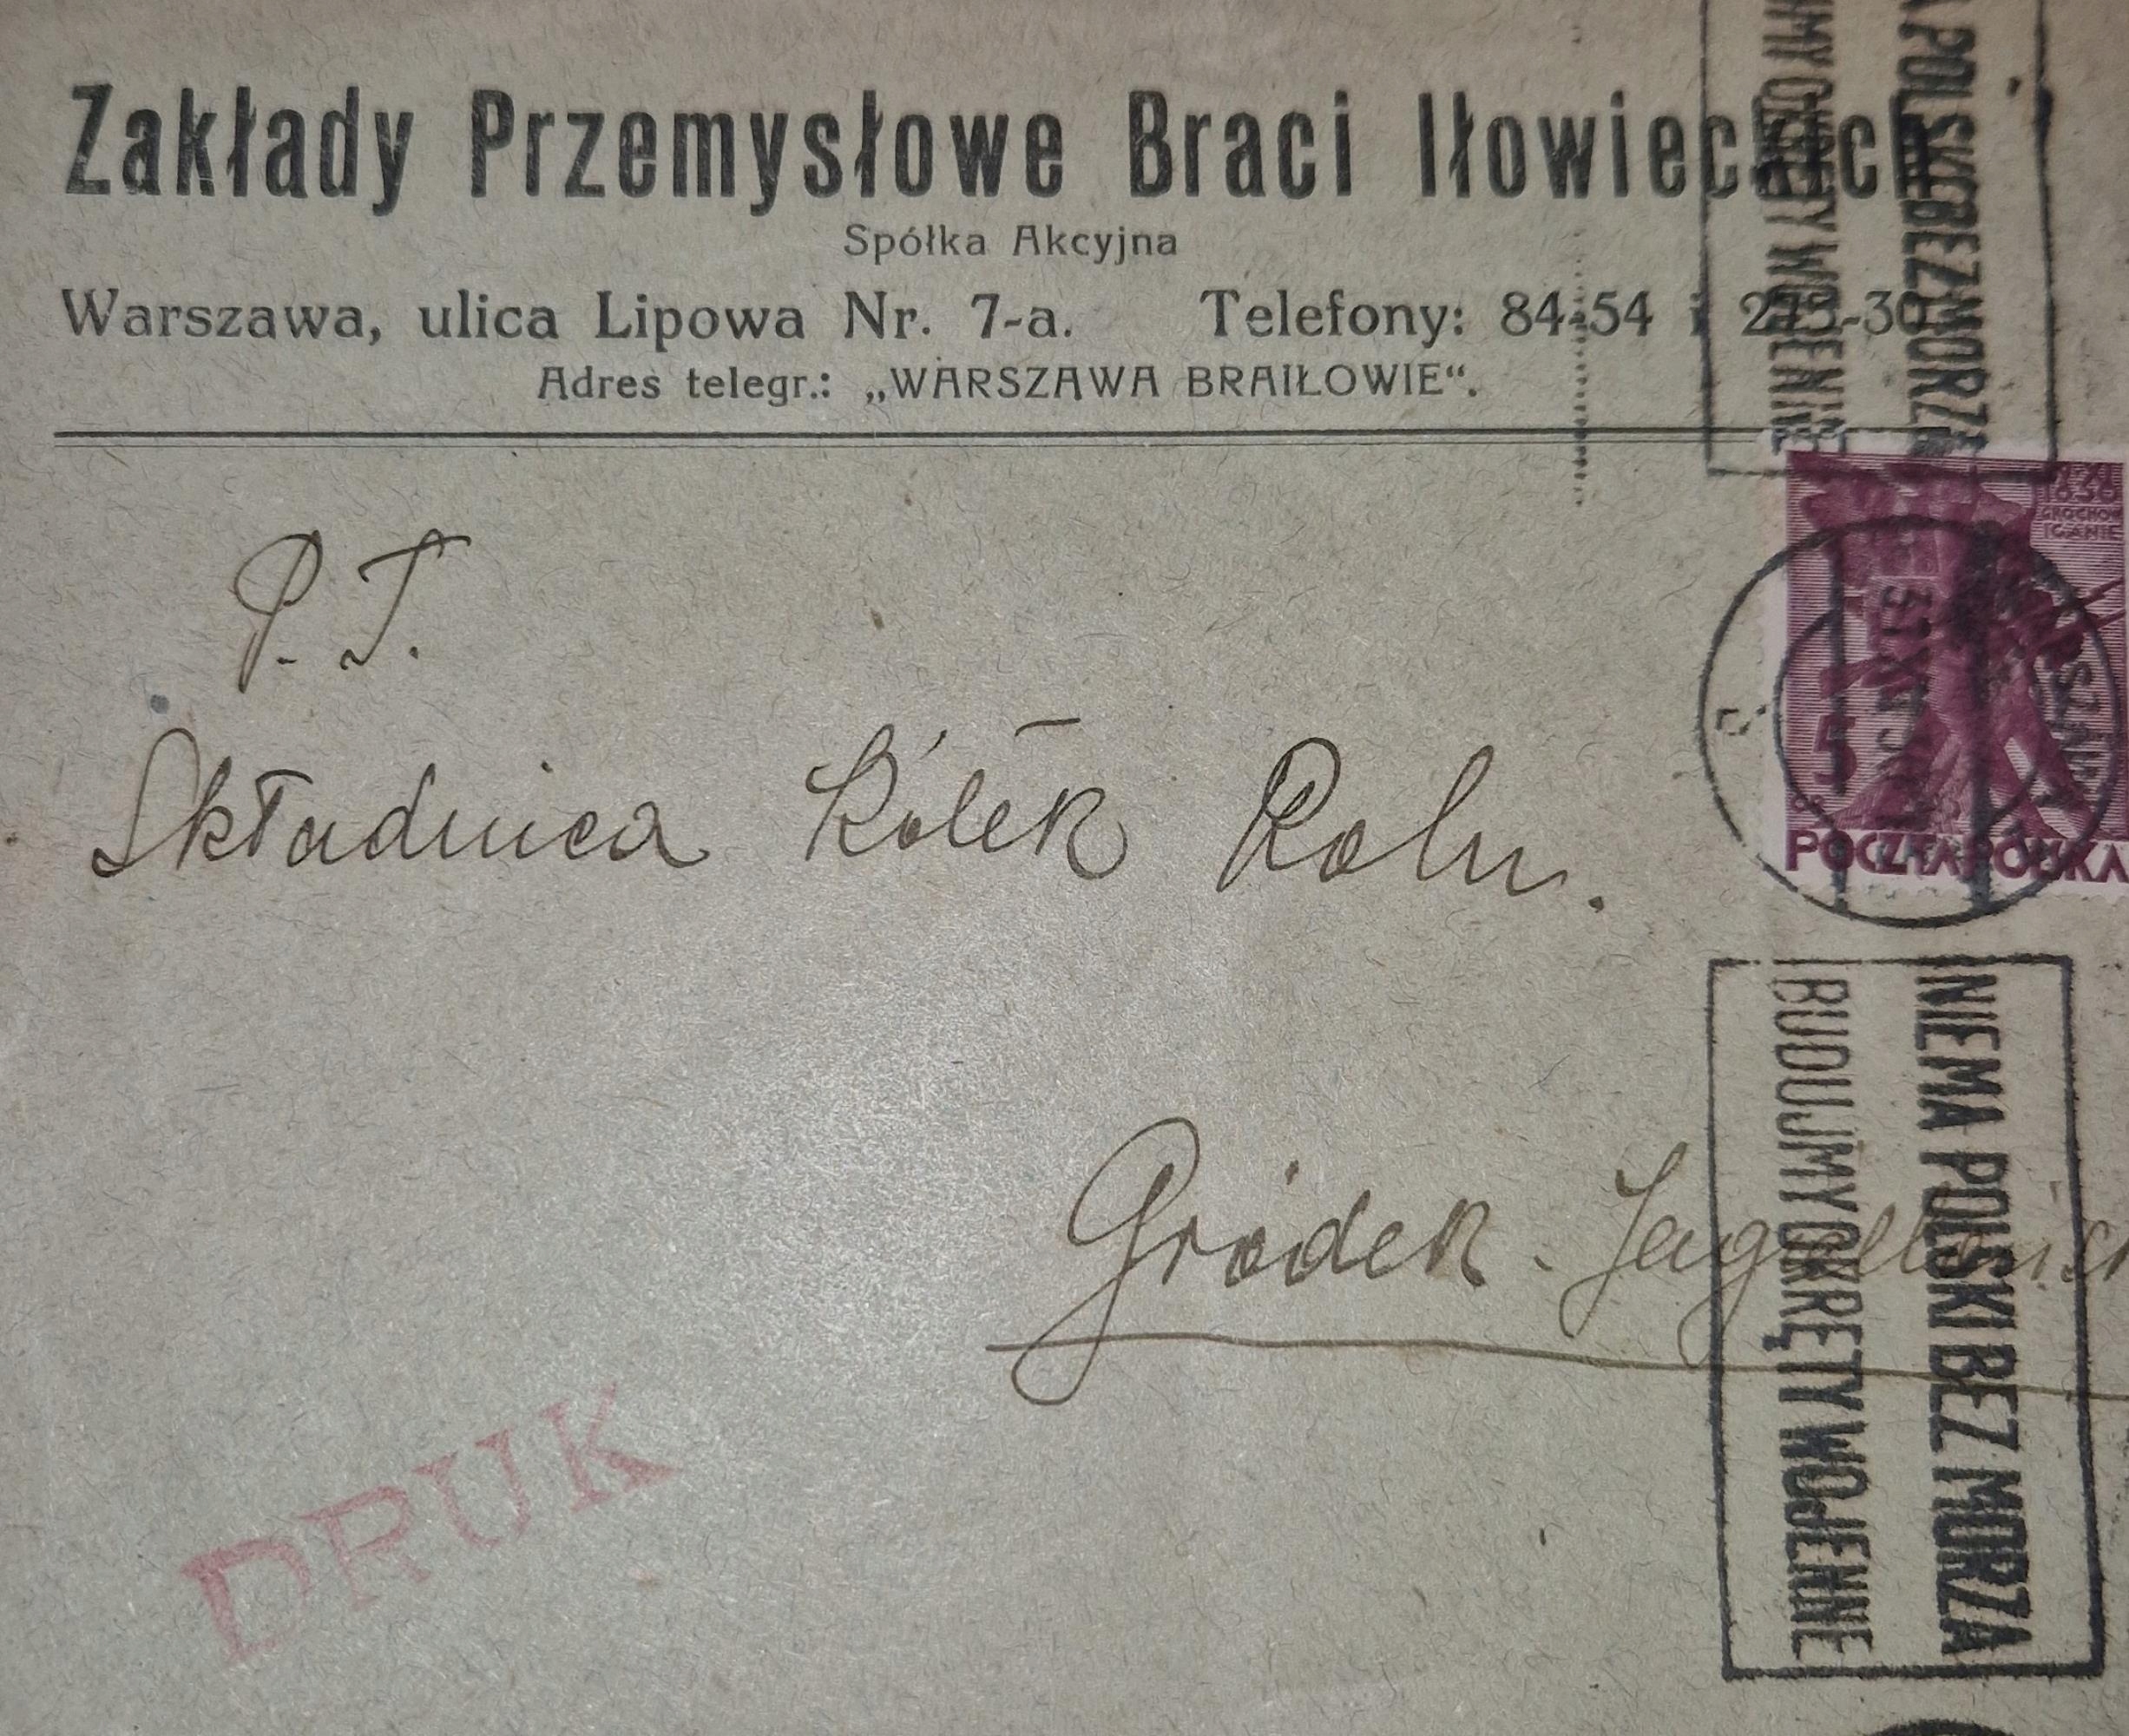 Zakłady Przemysłowe Braci Iłowieckich
Spółka Akcyjna
Warszawa, ulica Lipowa Nr. 7-a. Telefony: 84-54 i
Adres telegr.: „WARSZAWA BRAIŁOWIE“.
A POLSKI BEZ MORZA
JMY OKRĘTY WOJENNE
XI
1830
GROCHÓW
IGANIE
5
POCZTA POLSKA
WARSZAWA
P. T.
Składnica Kółek Roln.
Gródek. Jagielloński
NIEMA POLSKI BEZ MORZA
BUDUJMY OKRĘTY WOJENNE
DRUK